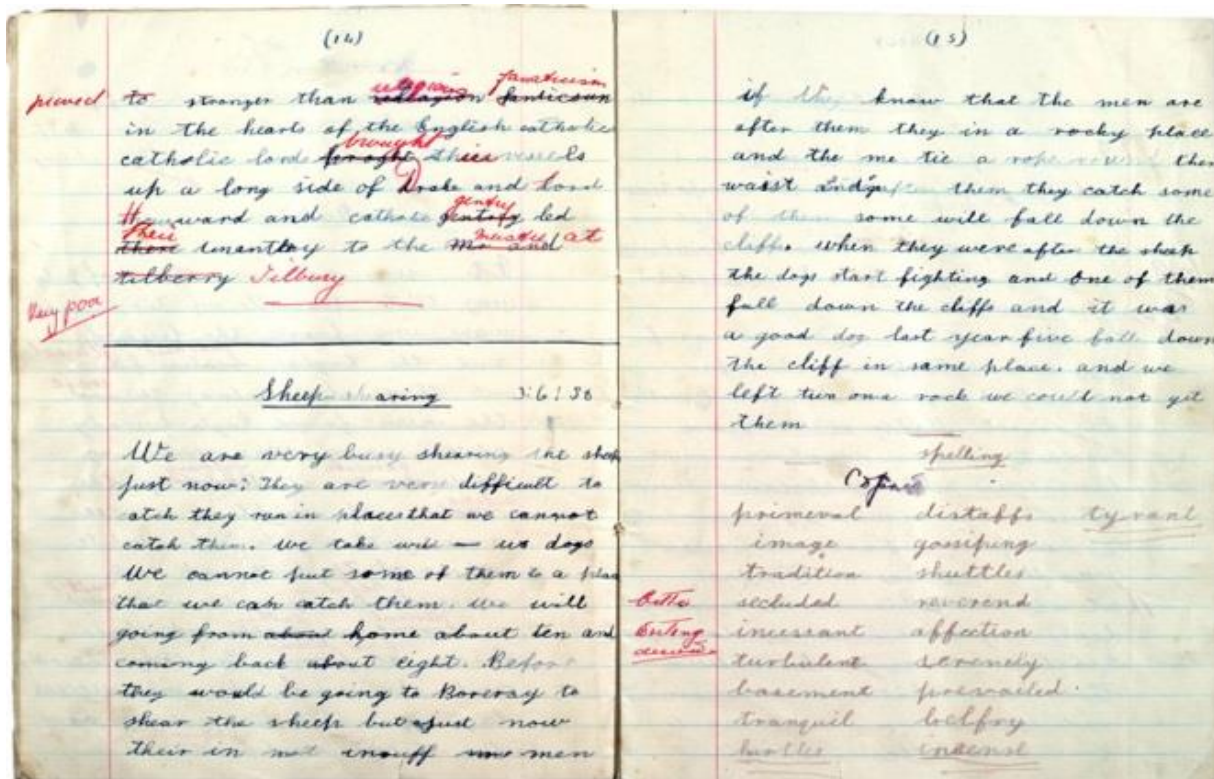 (14)
proved to stronger than religious fanaticism
in the hearts of the English catholic
catholic lord brought their vessels
up a long side of Drake and Lord
Howard and catholic gentry led
their tenantry to the at
tilberry Tilbury
Very poor
Sheep shearing 3:6:30
We are very busy shearing the sheep
just now; They are very difficult to
catch they run in places that we cannot
catch them. We take with us dogs
We cannot put some of them to a place
that we can catch them. We will
going from about home about ten and
coming back about eight. Before
they would be going to Boreray to
shear the sheep but just now
their in not inouff men
(15)
if they know that the men are
after them they in a rocky place
and the me tie a rope round their
waist them they catch some
of them some will fall down the
cliffs. when they were after the sheep
the dogs start fighting and one of them
fall down the cliffs and it was
a good dog last year five fall down
the cliff in same place. and we
left two on a rock we could not get
them
spelling
primeval distaffs tyrant
image gossiping
tradition shuttles
secluded reverend
incessant affection
turbulent serenely
basement prevailed.
tranquil belfry
hurtles incense